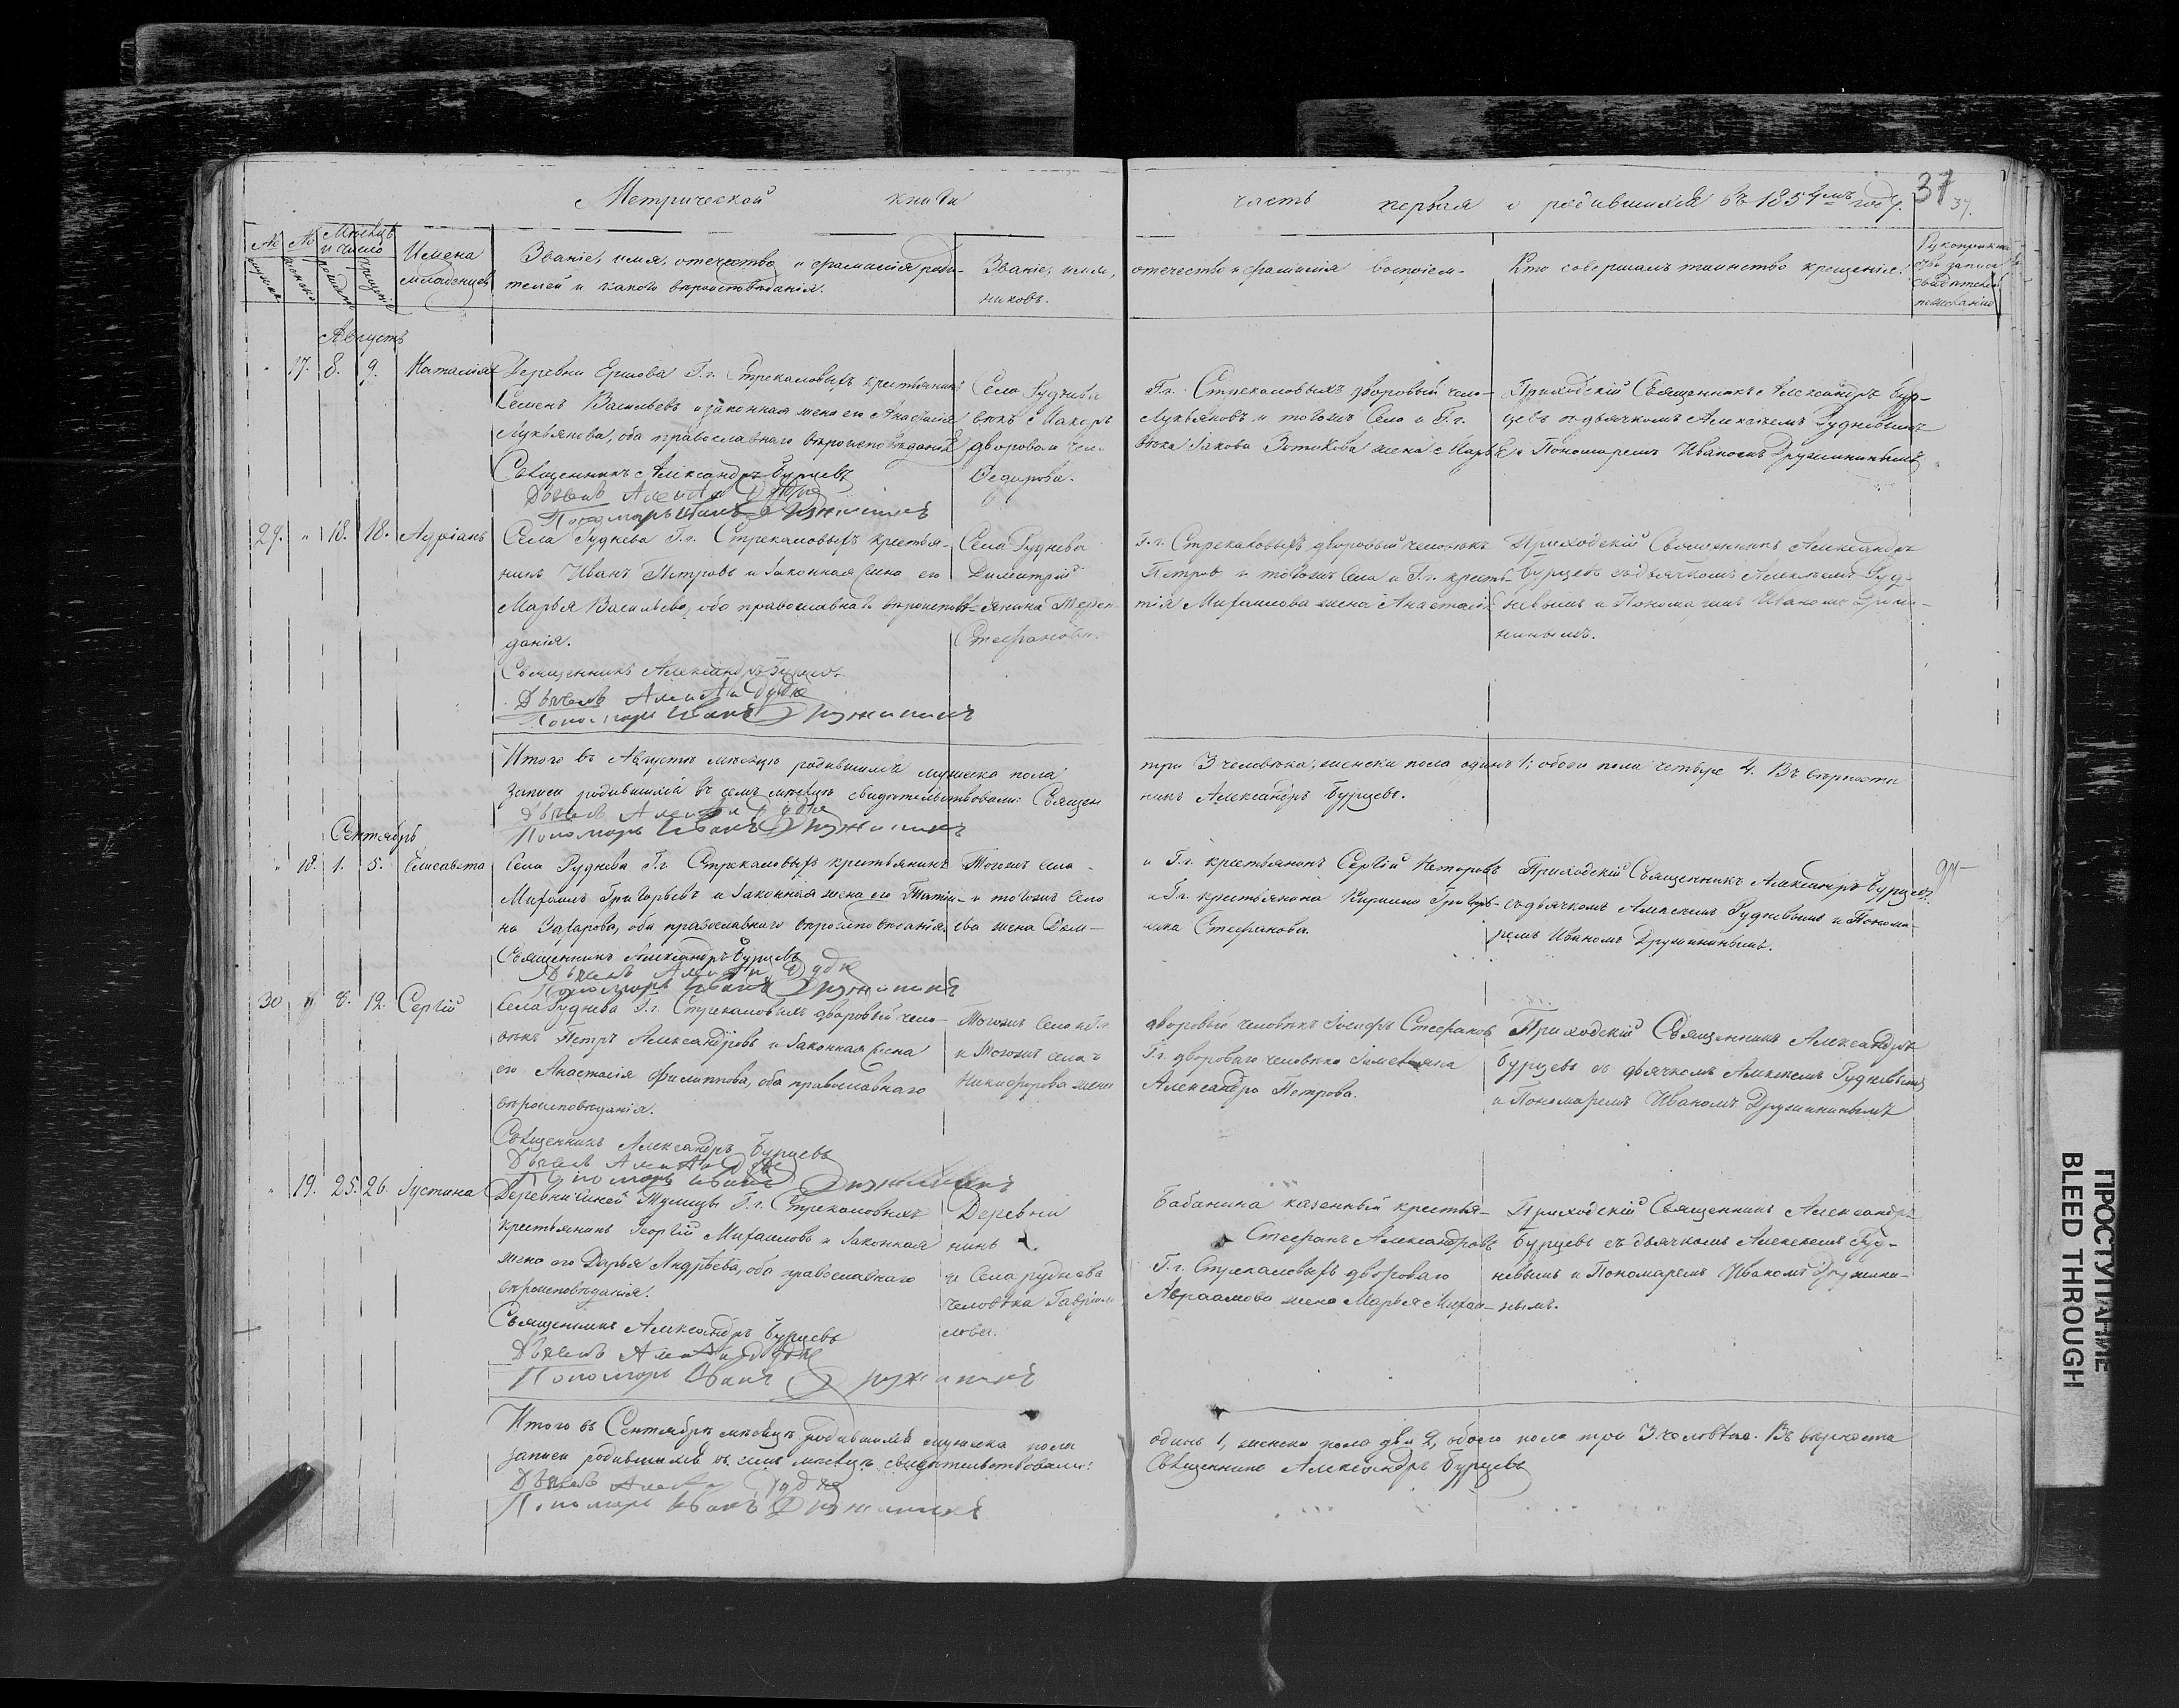 Метрической книги часть первая о родившихся въ 1854мъ году.
37
37.
№ № Мѣсяцъ и число
Имена младенцевъ
Званіе, имя, отечество и фамилія роди-
телей и какого вѣроисповѣданія.
Званіе, имя, отечество и фамилія воспріем-
никовъ.
Кто совершалъ таинство крещенія.
Рукоприклад
ство записи
свидѣтелей
по желанію
Августъ
17. 8. 9. Наталія
Деревни Ершова Г.г. Стрекаловыхъ крестьянинъ
Семенъ Васильевъ и законная жена его Анастасія
Лукьянова, оба православнаго вѣроисповѣданія
Священникъ Александръ Бурцевъ
Дьячекъ Алексѣй
Пономарь Иванъ Дружининъ
Села Руднева Г.г. Стрекаловыхъ дворовый чело-
вѣкъ Макаръ Лукьяновъ и тогожъ Села и Г.г.
двороваго чело-
вѣка Іакова Зотикова жена Марья
Федорова.
Приходскій Священникъ Александръ Бур-
цевъ съ дьячкомъ Алексѣемъ Рудневымъ
и Пономаремъ Иваномъ Дружининымъ
29. 18. 18. Адріанъ
Села Руднева Г.г. Стрекаловыхъ крестья-
нинъ Иванъ Петровъ и законная жена его
Марья Васильева, оба православнаго вѣроисповѣ-
данія.
Священникъ Александръ Бурцевъ
Дьячекъ Алексѣй
Пономарь Иванъ Дружининъ
Села Руднева Г.г. Стрекаловыхъ дворовый человѣкъ
Димитрій Петровъ и тогожъ Села и Г.г. кресть-
янина Терен-
тія Михаилова жена Анастасія
Стефанова.
Приходскій Священникъ Александръ
Бурцевъ съ дьячкомъ Алексѣемъ Руд-
невымъ и Пономаремъ Иваномъ Дружи-
нинымъ.
Итого въ Августѣ мѣсяцѣ родившихся мужеска пола три 3 человѣка, женска пола одинъ 1; обоего пола четыре 4. Въ вѣрности
записи родившихся въ семъ мѣсяцѣ свидѣтельствовали: Священ
никъ Александръ Бурцевъ.
Дьячекъ Алексѣй
Пономарь Иванъ Дружининъ
Сентябрь
18. 1. 5. Елисавета
Села Руднева Г.г. Стрекаловыхъ крестьянинъ
Михаилъ Григорьевъ и законная жена его Татья-
на Захарова, оба православнаго вѣроисповѣданія.
Священникъ Александръ Бурцевъ
Дьячекъ Алексѣй
Пономарь Иванъ Дружининъ
Тогожъ села и Г.г. крестьянинъ Сергій Несторовъ
и тогожъ Села и Г.г. крестьянина Кирилла Григорь-
ева жена Дом-
ника Стефанова.
Приходскій Священникъ Александръ Бурцевъ
съ дьячкомъ Алексѣемъ Рудневымъ и Понома-
ремъ Иваномъ Дружининымъ.
30 8. 12. Сергій
Села Руднева Г.г. Стрекаловыхъ дворовый чело-
вѣкъ Петръ Александровъ и законная жена
его Анастасія Филиппова, оба православнаго
вѣроисповѣданія.
Священникъ Александръ Бурцевъ
Дьячекъ Алексѣй
Пономарь Иванъ Дружининъ
Тогожъ Села и Г.г. дворовый человѣкъ Іосифъ Стефановъ
и Тогожъ села и Г.г. двороваго человѣка
Никифорова жена
Александра Петрова.
Приходскій Священникъ Александръ
Бурцевъ съ дьячкомъ Алексѣемъ Рудневымъ
и Пономаремъ Иваномъ Дружининымъ
19. 25. 26. Іустина
Деревни Синей Тулицы Г.г. Стрекаловыхъ
крестьянинъ Георгій Михаиловъ и законная
жена его Дарья Андреева, оба православнаго
вѣроисповѣданія.
Священникъ Александръ Бурцевъ
Дьячекъ Алексѣй
Пономарь Иванъ Дружининъ
Деревни Бабанина казенный крестья-
нинъ Стефанъ Александровъ
и Села руднева Г.г. Стрекаловыхъ двороваго
человѣка Гавріила Авраамова жена Марья Михаи-
лова.
Приходскій Священникъ Александръ
Бурцевъ съ дьячкомъ Алексѣемъ Руд-
невымъ и Пономаремъ Иваномъ Дружини-
нымъ.
Итого въ Сентябрѣ мѣсяцѣ родившихся мужеска пола одинъ 1, женска пола два 2, обоего пола три 3 человѣка. Въ вѣрности
записи родившихся въ семъ мѣсяцѣ свидѣтельствовали: Священникъ Александръ Бурцевъ
Дьячекъ Алексѣй
Пономарь Иванъ Дружининъ
ПРОСТУПАНИЕ
BLEED THROUGH